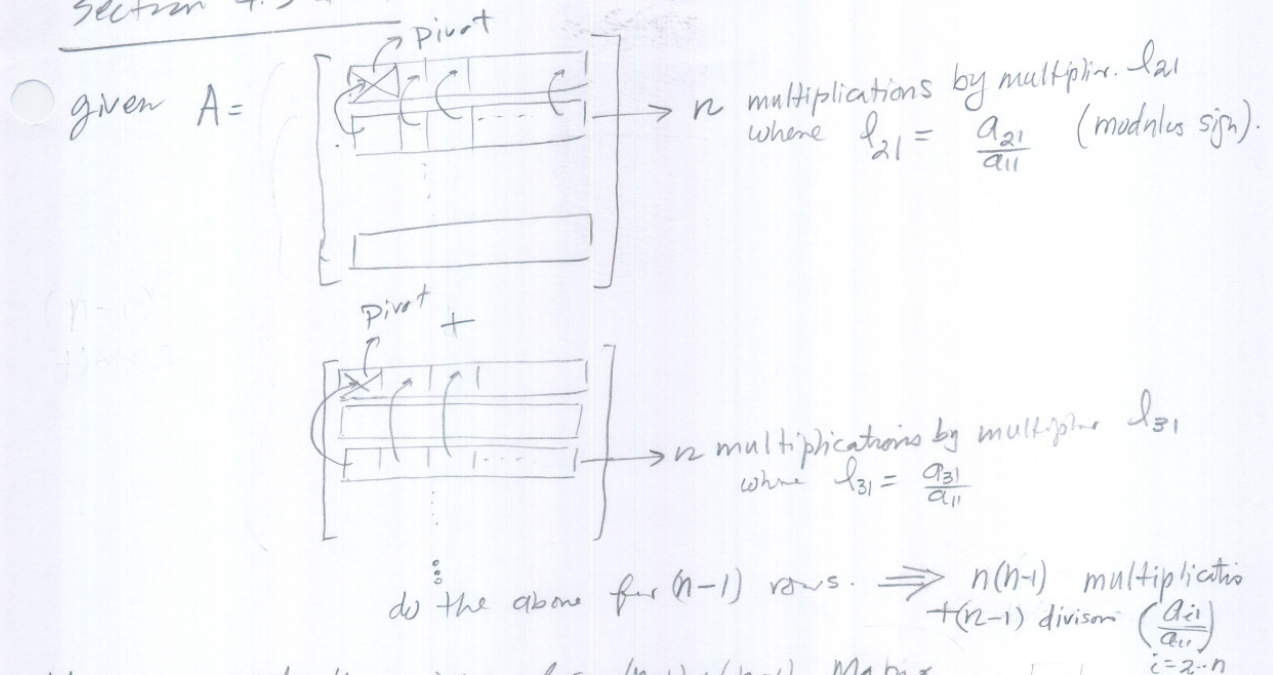 Section 4.3
Pivot
given A =
→ n multiplications by multiplier. l21
where l21 = a21/a11 (modulus sign).
Pivot +
→ n multiplications by multiplier l31
where l31 = a31/a11
do the above for (n-1) rows. ⇒ n(n-1) multiplicatio
+(n-1) divison (ai1/a11)
i=2..n
for (n-1)x(n-1) Matrix